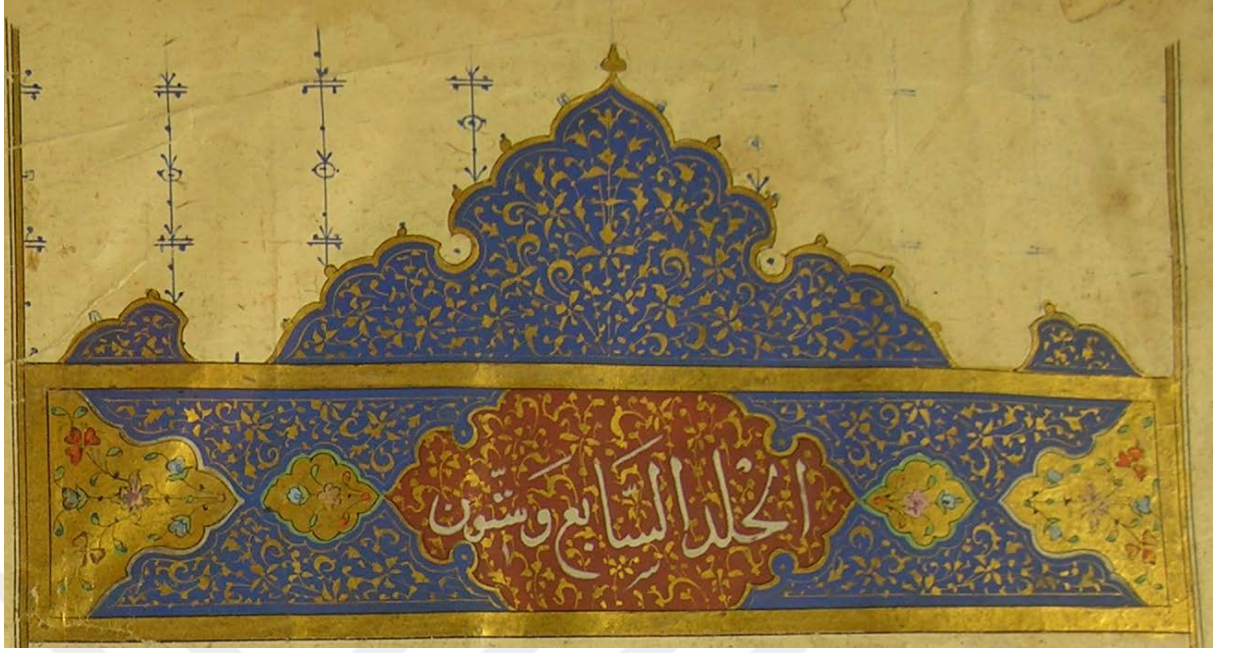 المجلد السابع وستون